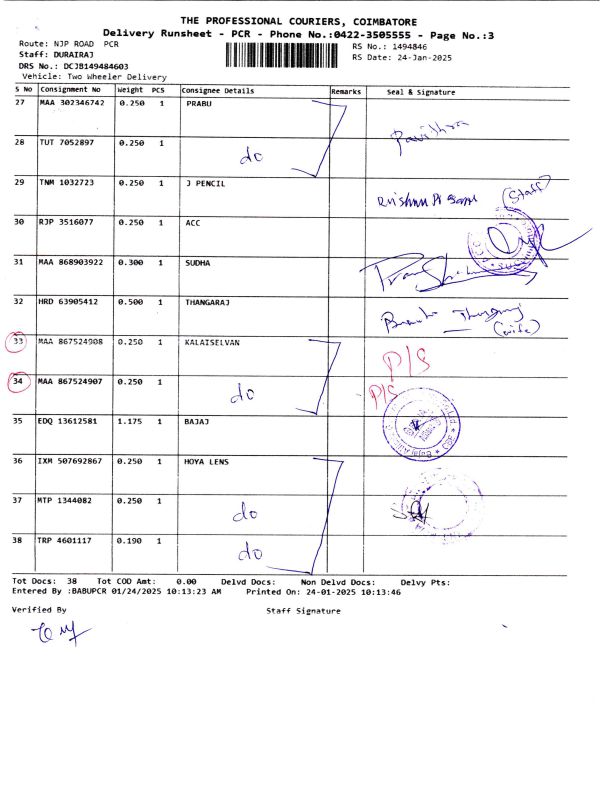 THE PROFESSIONAL COURIERS, COIMBATORE
Delivery Runsheet - PCR - Phone No.:0422-3505555 - Page No.:3
Route: NJP ROAD PCR
RS No.: 1494846
Staff: DURAIRAJ
RS Date: 24-Jan-2025
DRS No.: DCJB149484603
Vehicle: Two Wheeler Delivery
S No Consignment No Weight PCS Consignee Details Remarks Seal & Signature
27 MAA 302346742 0.250 1 PRABU
28 TUT 7052897 0.250 1 do
29 TNM 1032723 0.250 1 J PENCIL (Staff)
30 RJP 3516077 0.250 1 ACC
31 MAA 868903922 0.300 1 SUDHA
32 HRD 63905412 0.500 1 THANGARAJ (wife)
33 MAA 867524908 0.250 1 KALAISELVAN P/S
34 MAA 867524907 0.250 1 do P/S
35 EDQ 13612581 1.175 1 BAJAJ
36 IXM 507692867 0.250 1 HOYA LENS
37 MTP 1344082 0.250 1 do
38 TRP 4601117 0.190 1 do
Tot Docs: 38 Tot COD Amt: 0.00 Delvd Docs: Non Delvd Docs: Delvy Pts:
Entered By :BABUPCR 01/24/2025 10:13:23 AM Printed On: 24-01-2025 10:13:46
Verified By Staff Signature